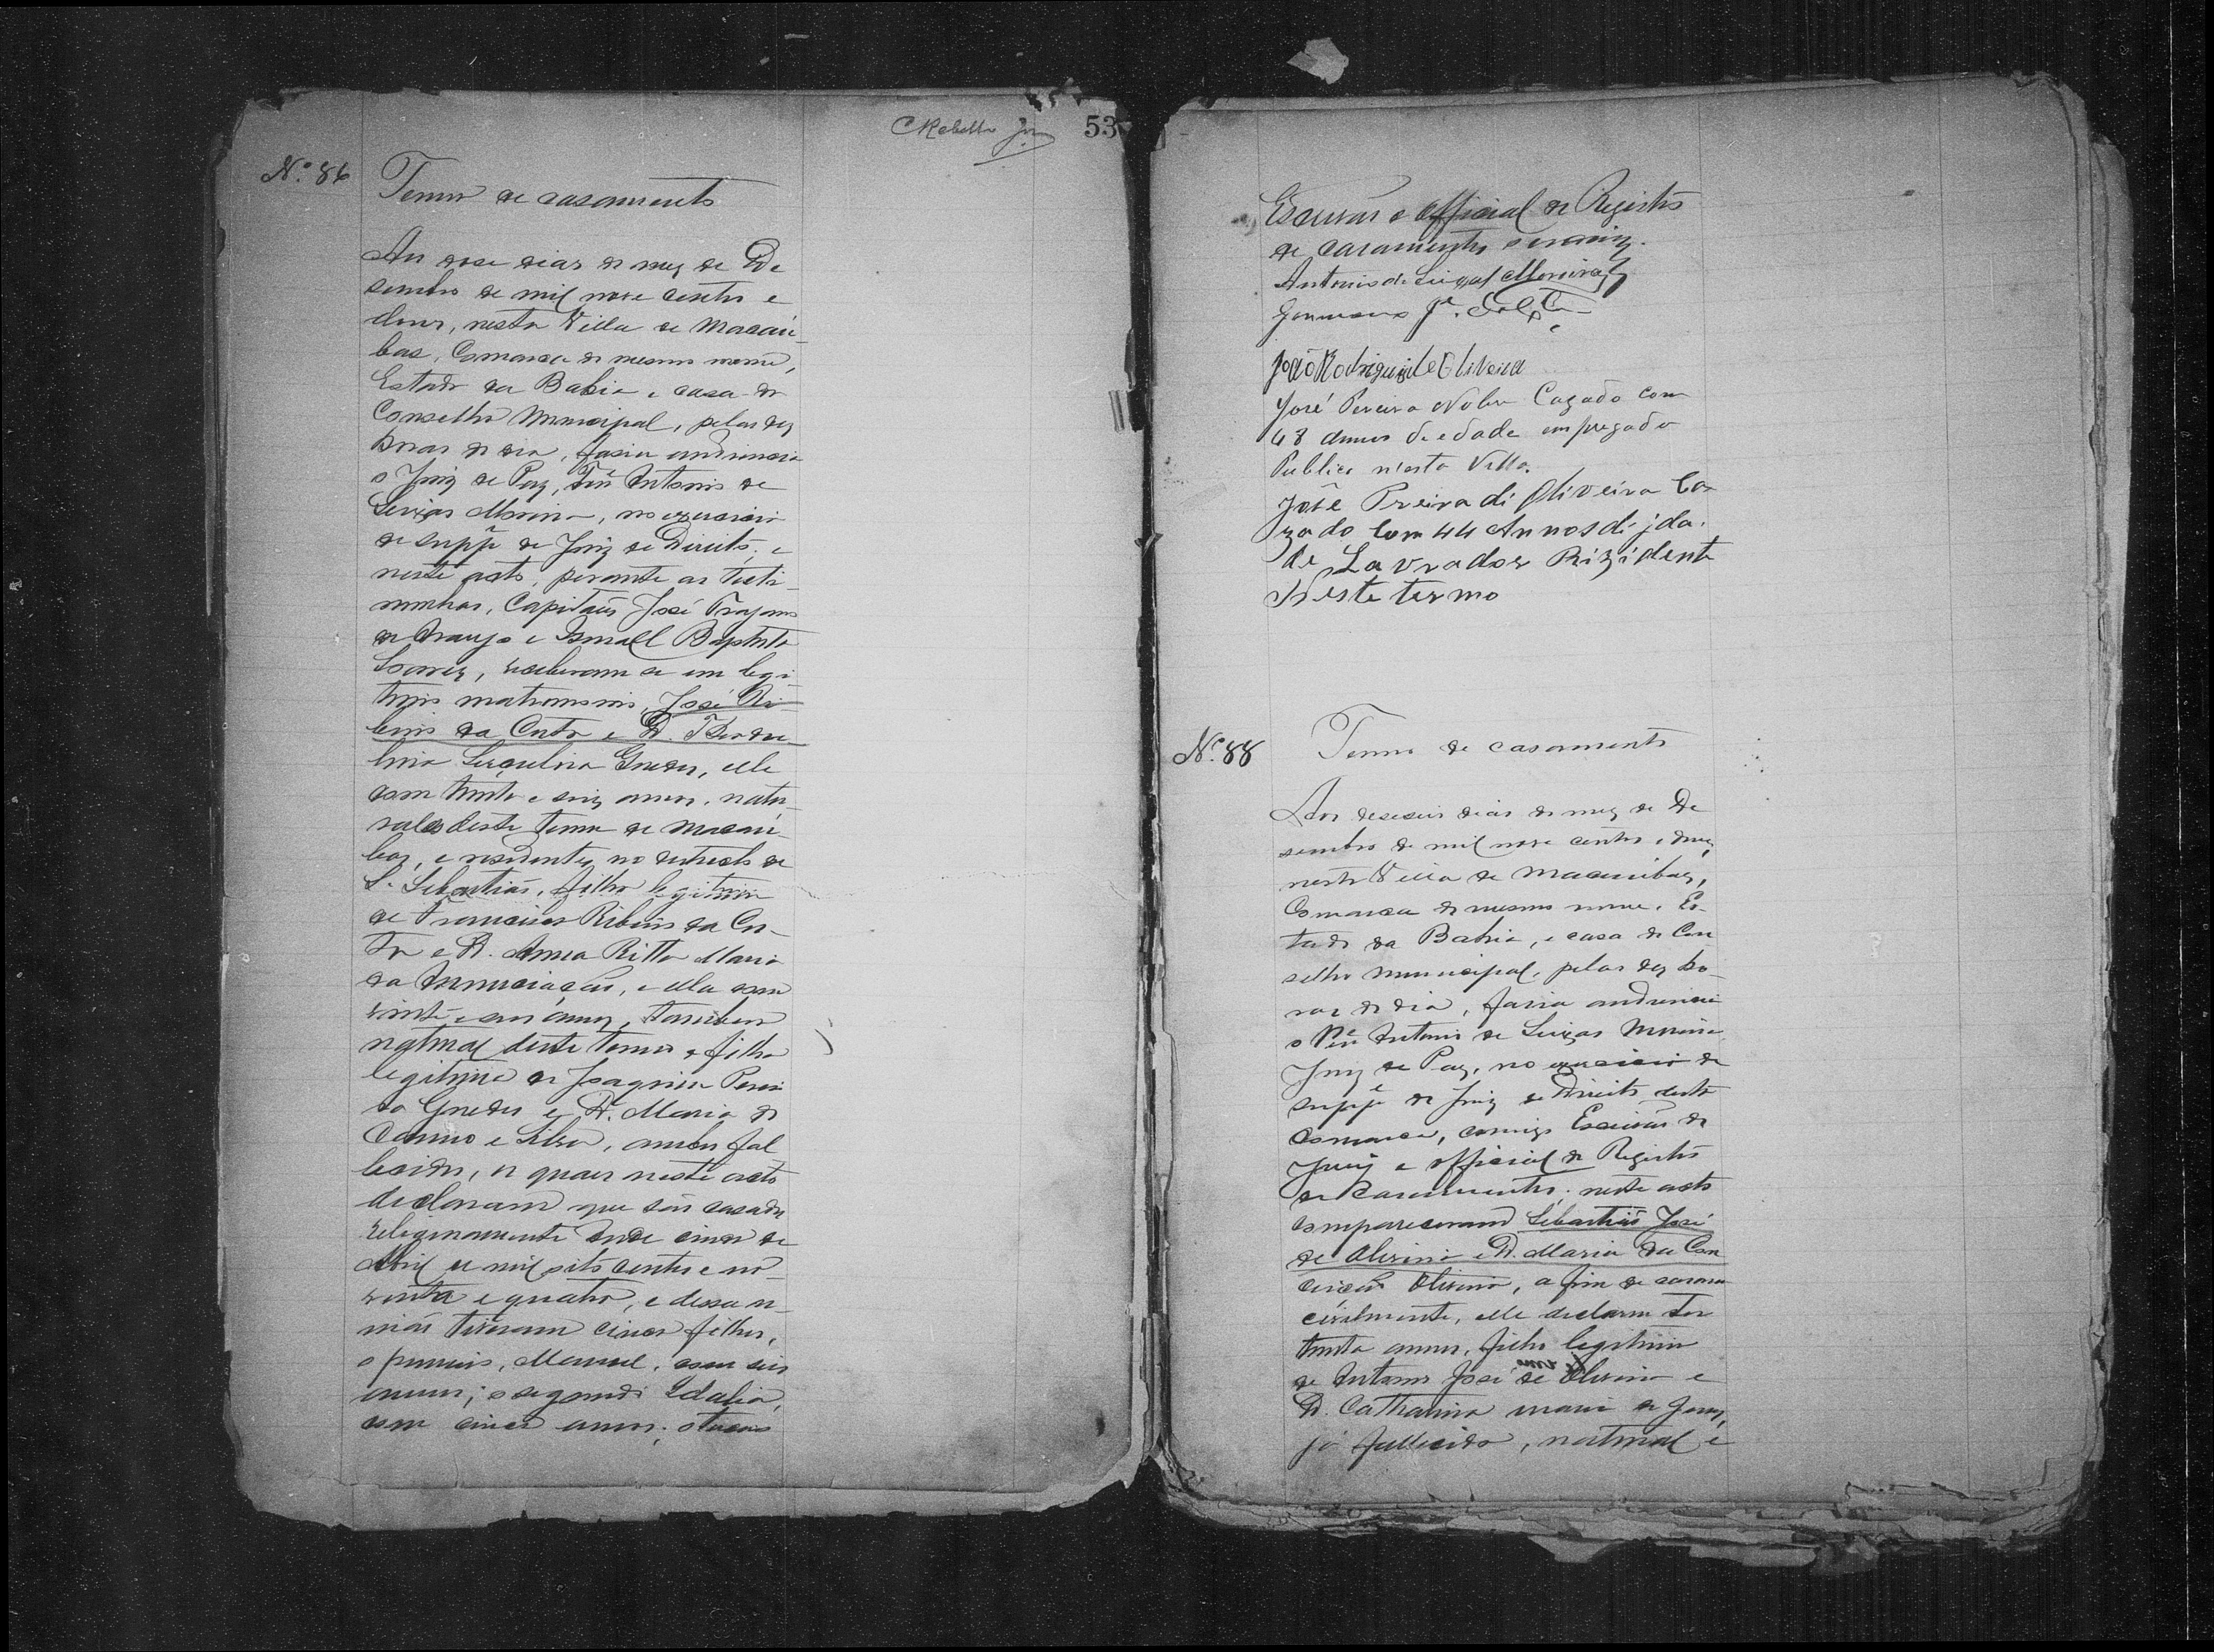 CRebello Jor
53
Nº 86
Termo de casamento
Aos dose dias do mez de De
sembro de mil nove centos e
dous, nesta Villa de Macaú-
bas, Comarca do mesmo nome,
Estado da Bahia e casa do
Conselho Municipal, pelas dez
horas do dia, fasia audiencia
o Juiz de Paz, Tene Antonio de
Seixas Moreira, no exercicio
de suppe de Juiz de Direito, e
neste acto, perante as teste-
munhas, Capitães José Trajano
de Araujo e Ismael Baptista
Soares, receberam se em legi-
timo matrimonio, José Ri-
beiro da Costa e D.
Guedes, elle
com trinta e seis annos, natu-
raes deste Termo de Macaú-
bas, e residentes no districto de
S. Sebastião, filho legitimo
de Francisco Ribeiro da Cos-
ta e D. Anna Ritta Maria
da Annunciação, e ella com
vinte e seis annos, tambem
natural deste termo e filha
legitima de Joaquim Perei
ra Guedes e D. Maria do
Carmo e Silva, ambos fal
lecidos, os quaes neste acto
declararam que são casados
religiosamente desde cinco de
Abril de mil oito centos e no-
venta e quatro, e dessa u-
nião tiveram cinco filhos,
o primeiro, Manoel, com seis
annos; o segundo Edalia,
com cinco annos; o terceiro
Escrivão e official do Registro
de casamentos o escrevi.
Antonio de Seixas Moreira
João Rodrigues de Oliveira
José Pereira Nobre Cazado com
48 annos de edade empregado
Publico n'esta Villa.
José Preira di Oliveira Ca
zado Com 44 Annos di jda.
de Lavrador Rizidente
Neste termo
Nº 88
Termo de casamento
Aos deseseis dias do mez de De
sembro de mil nove centos e dous,
nesta Villa de Macaúbas,
Comarca do mesmo nome, Es-
tado da Bahia, e casa do Con
selho Municipal, pelas dez ho-
ras do dia, fasia audiencia
o Tene Antonio de Seixas Moreira
Juiz de Paz, no exercicio de
suppe de Juiz de Direito desta
Comarca, comigo Escrivão do
Juizo e official do Registro
de Casamentos; neste acto
compareceram Sebastião José
de Oliveira e D. Maria da Con
ceição Oliveira, a fim de casarem
civilmente, elle declarou ter
trinta annos, filho legitimo
de Antonio José de Oliveira e
D. Catharina Maria de Jesus,
já fallecida, natural e